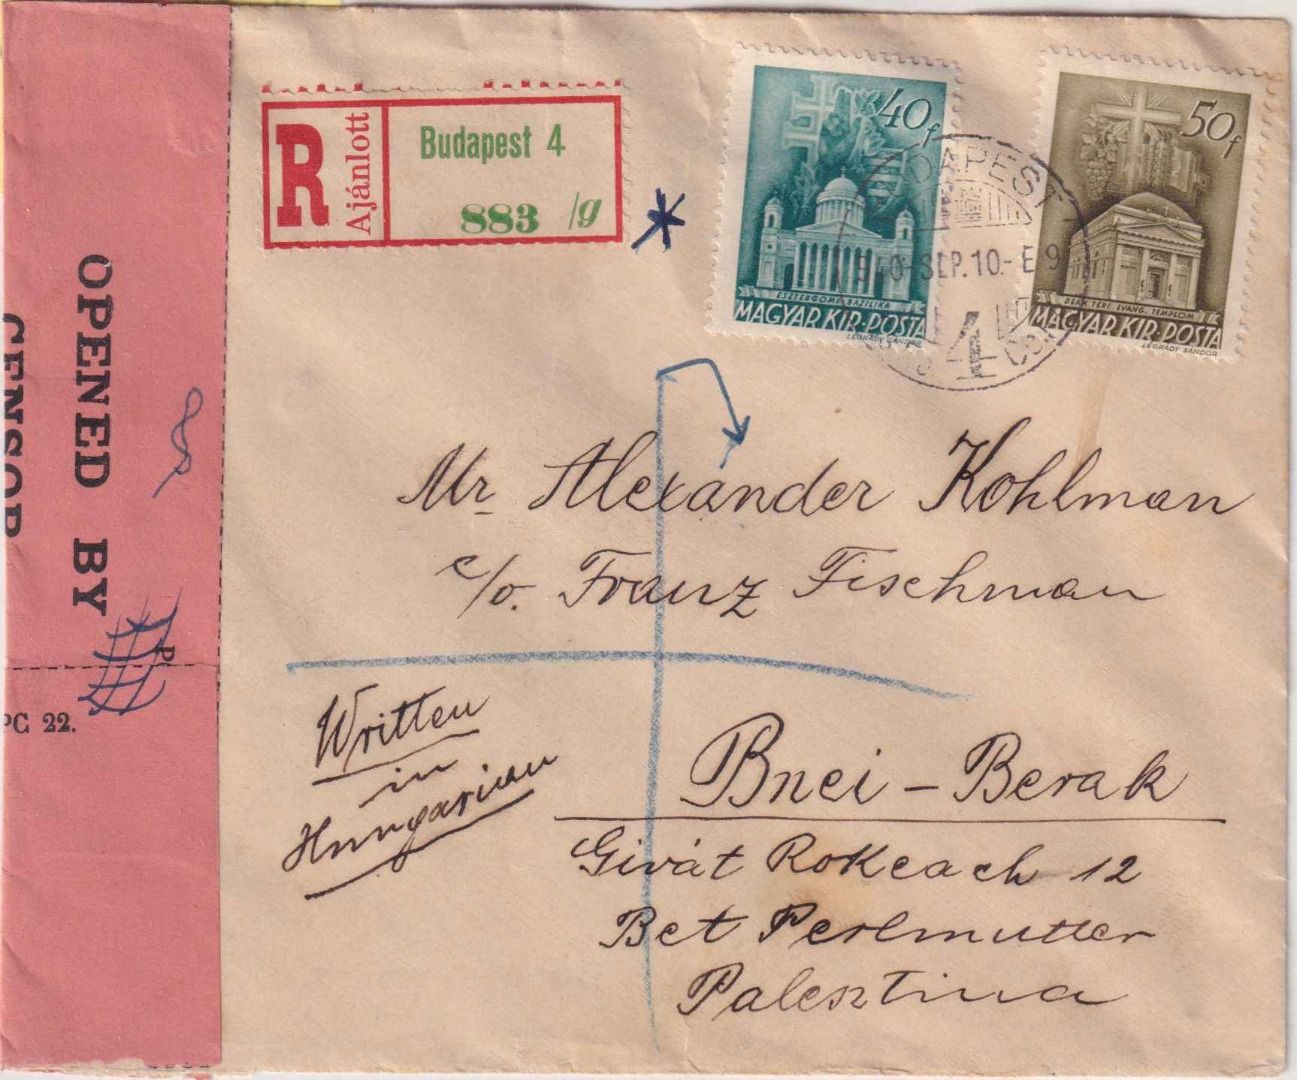 OPENED BY
CENSOR
P.
PC 22.
R
Ajánlott
Budapest 4
883 /g
40f
ESZTERGOMI BAZILIKA
MAGYAR KIR. POSTA
LÉGRÁDY SÁNDOR
50f
DEÁK TÉRI EVANG. TEMPLOM
MAGYAR KIR. POSTA
LÉGRÁDY SÁNDOR
DAPEST
940 SEP. 10.- E 9
4
Mr Alexander Kohlman
c/o. Franz Fischman
Written
in
Hungarian
Bnei - Berak
Givát Rokeach 12
Bet Perlmutter
Palesztina